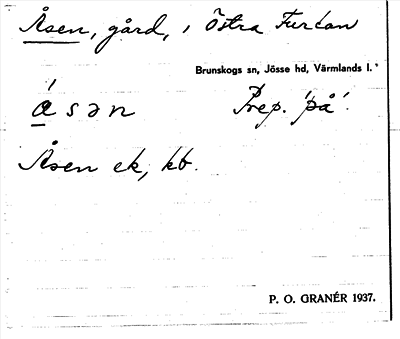 Åsen, gård, i Östra Furtan
Brunskogs sn, Jösse hd, Värmlands l.
ásən Prep. 'på'.
Åsen ek, kb.
P. O. GRANÉR 1937.